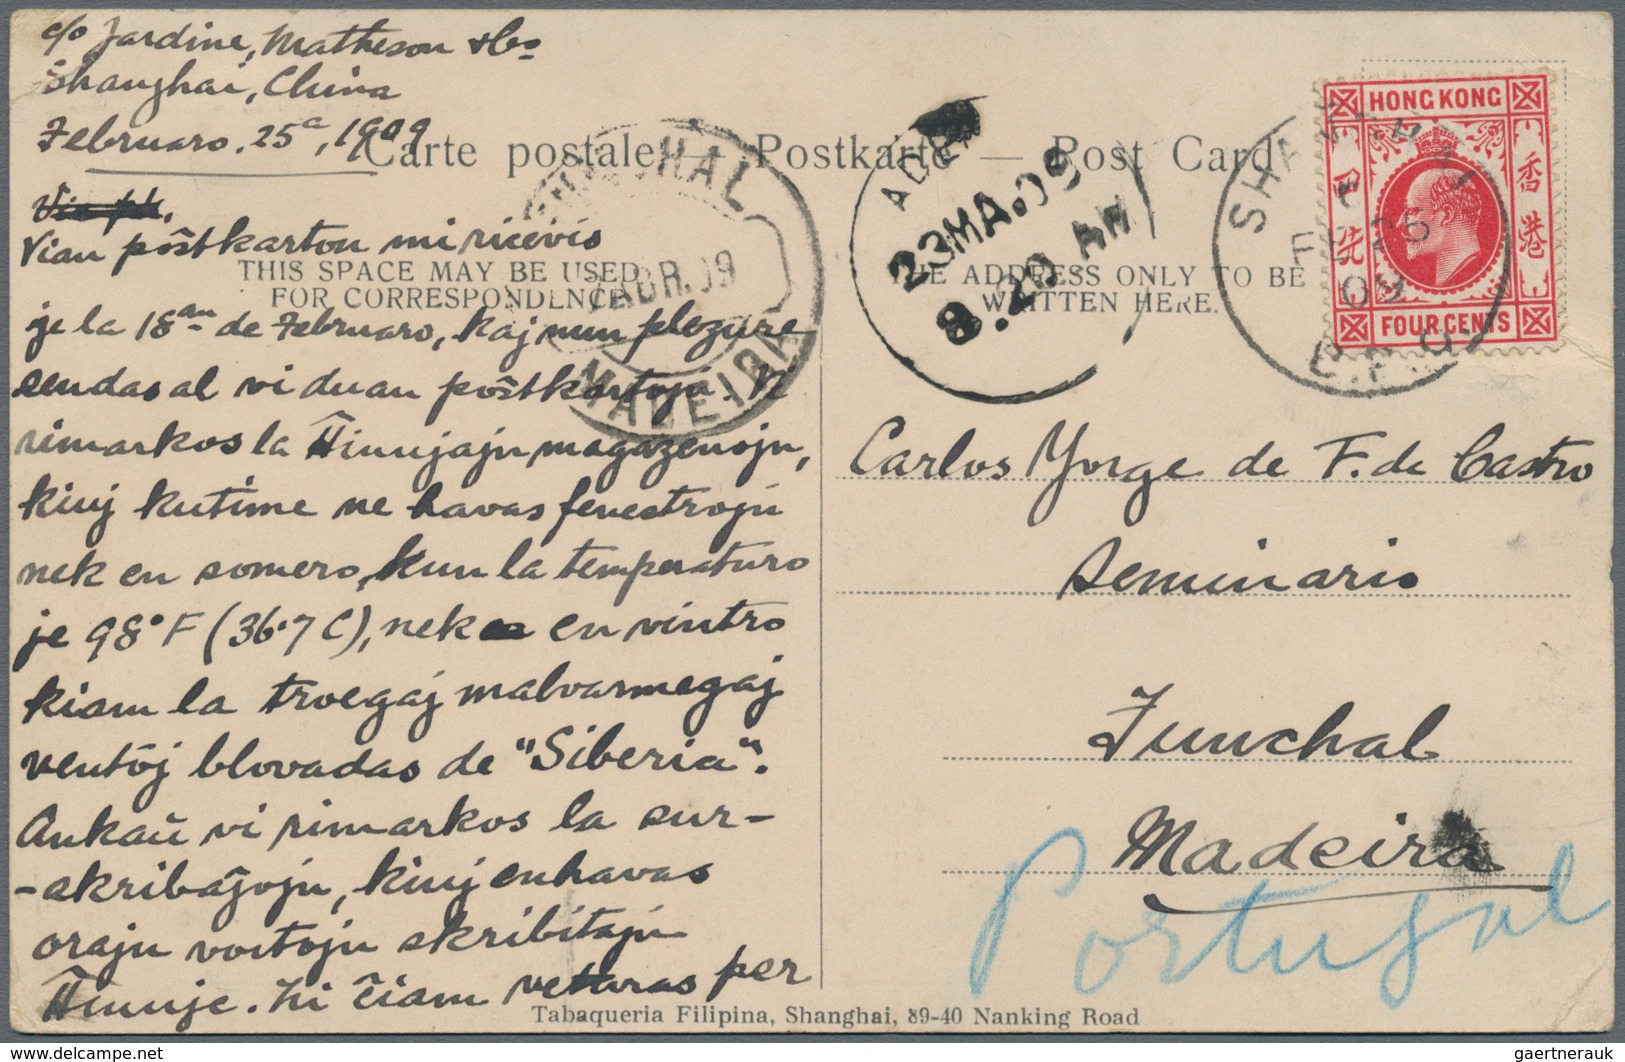 c/o Jardine, Matheson & Co
Shanghai, China
Februaro. 25a, 1909
Carte postale — Postkarte — Post Card
Vian pôŝtkarton mi ricevis
THIS SPACE MAY BE USED
FOR CORRESPONDENCE
je la 18an de Februaro, kaj nun plezure
sendas al vi duan pôŝtkartojn. Vi
rimarkos la Ĥinujajn magazenojn,
kiuj kutime ne havas fenestrojn
nek en somero, kun la temperaturo
je 98°F (36·7 C), nek en vintro
kiam la troegaj malvarmegaj
ventoj blovadas de "Siberia".
Ankaŭ vi rimarkos la sur-
-skribaĵojn, kiuj enhavas
orajn vortojn skribitajn
Ĥinuje. Ni ĉiam veturas per
FUNCHAL
ABR. 09
MADEIRA
ADEN
23MA.09
8.20 AM
THE ADDRESS ONLY TO BE
WRITTEN HERE.
SHANGHAI
FE 25
09
B.P.O.
HONG KONG
香港
FOUR CENTS
Carlos Yorge de F. de Castro
Seminario
Funchal
Madeira
Portugal
Tabaqueria Filipina, Shanghai, 39-40 Nanking Road
gaertnerauk
© www.delcampe.net